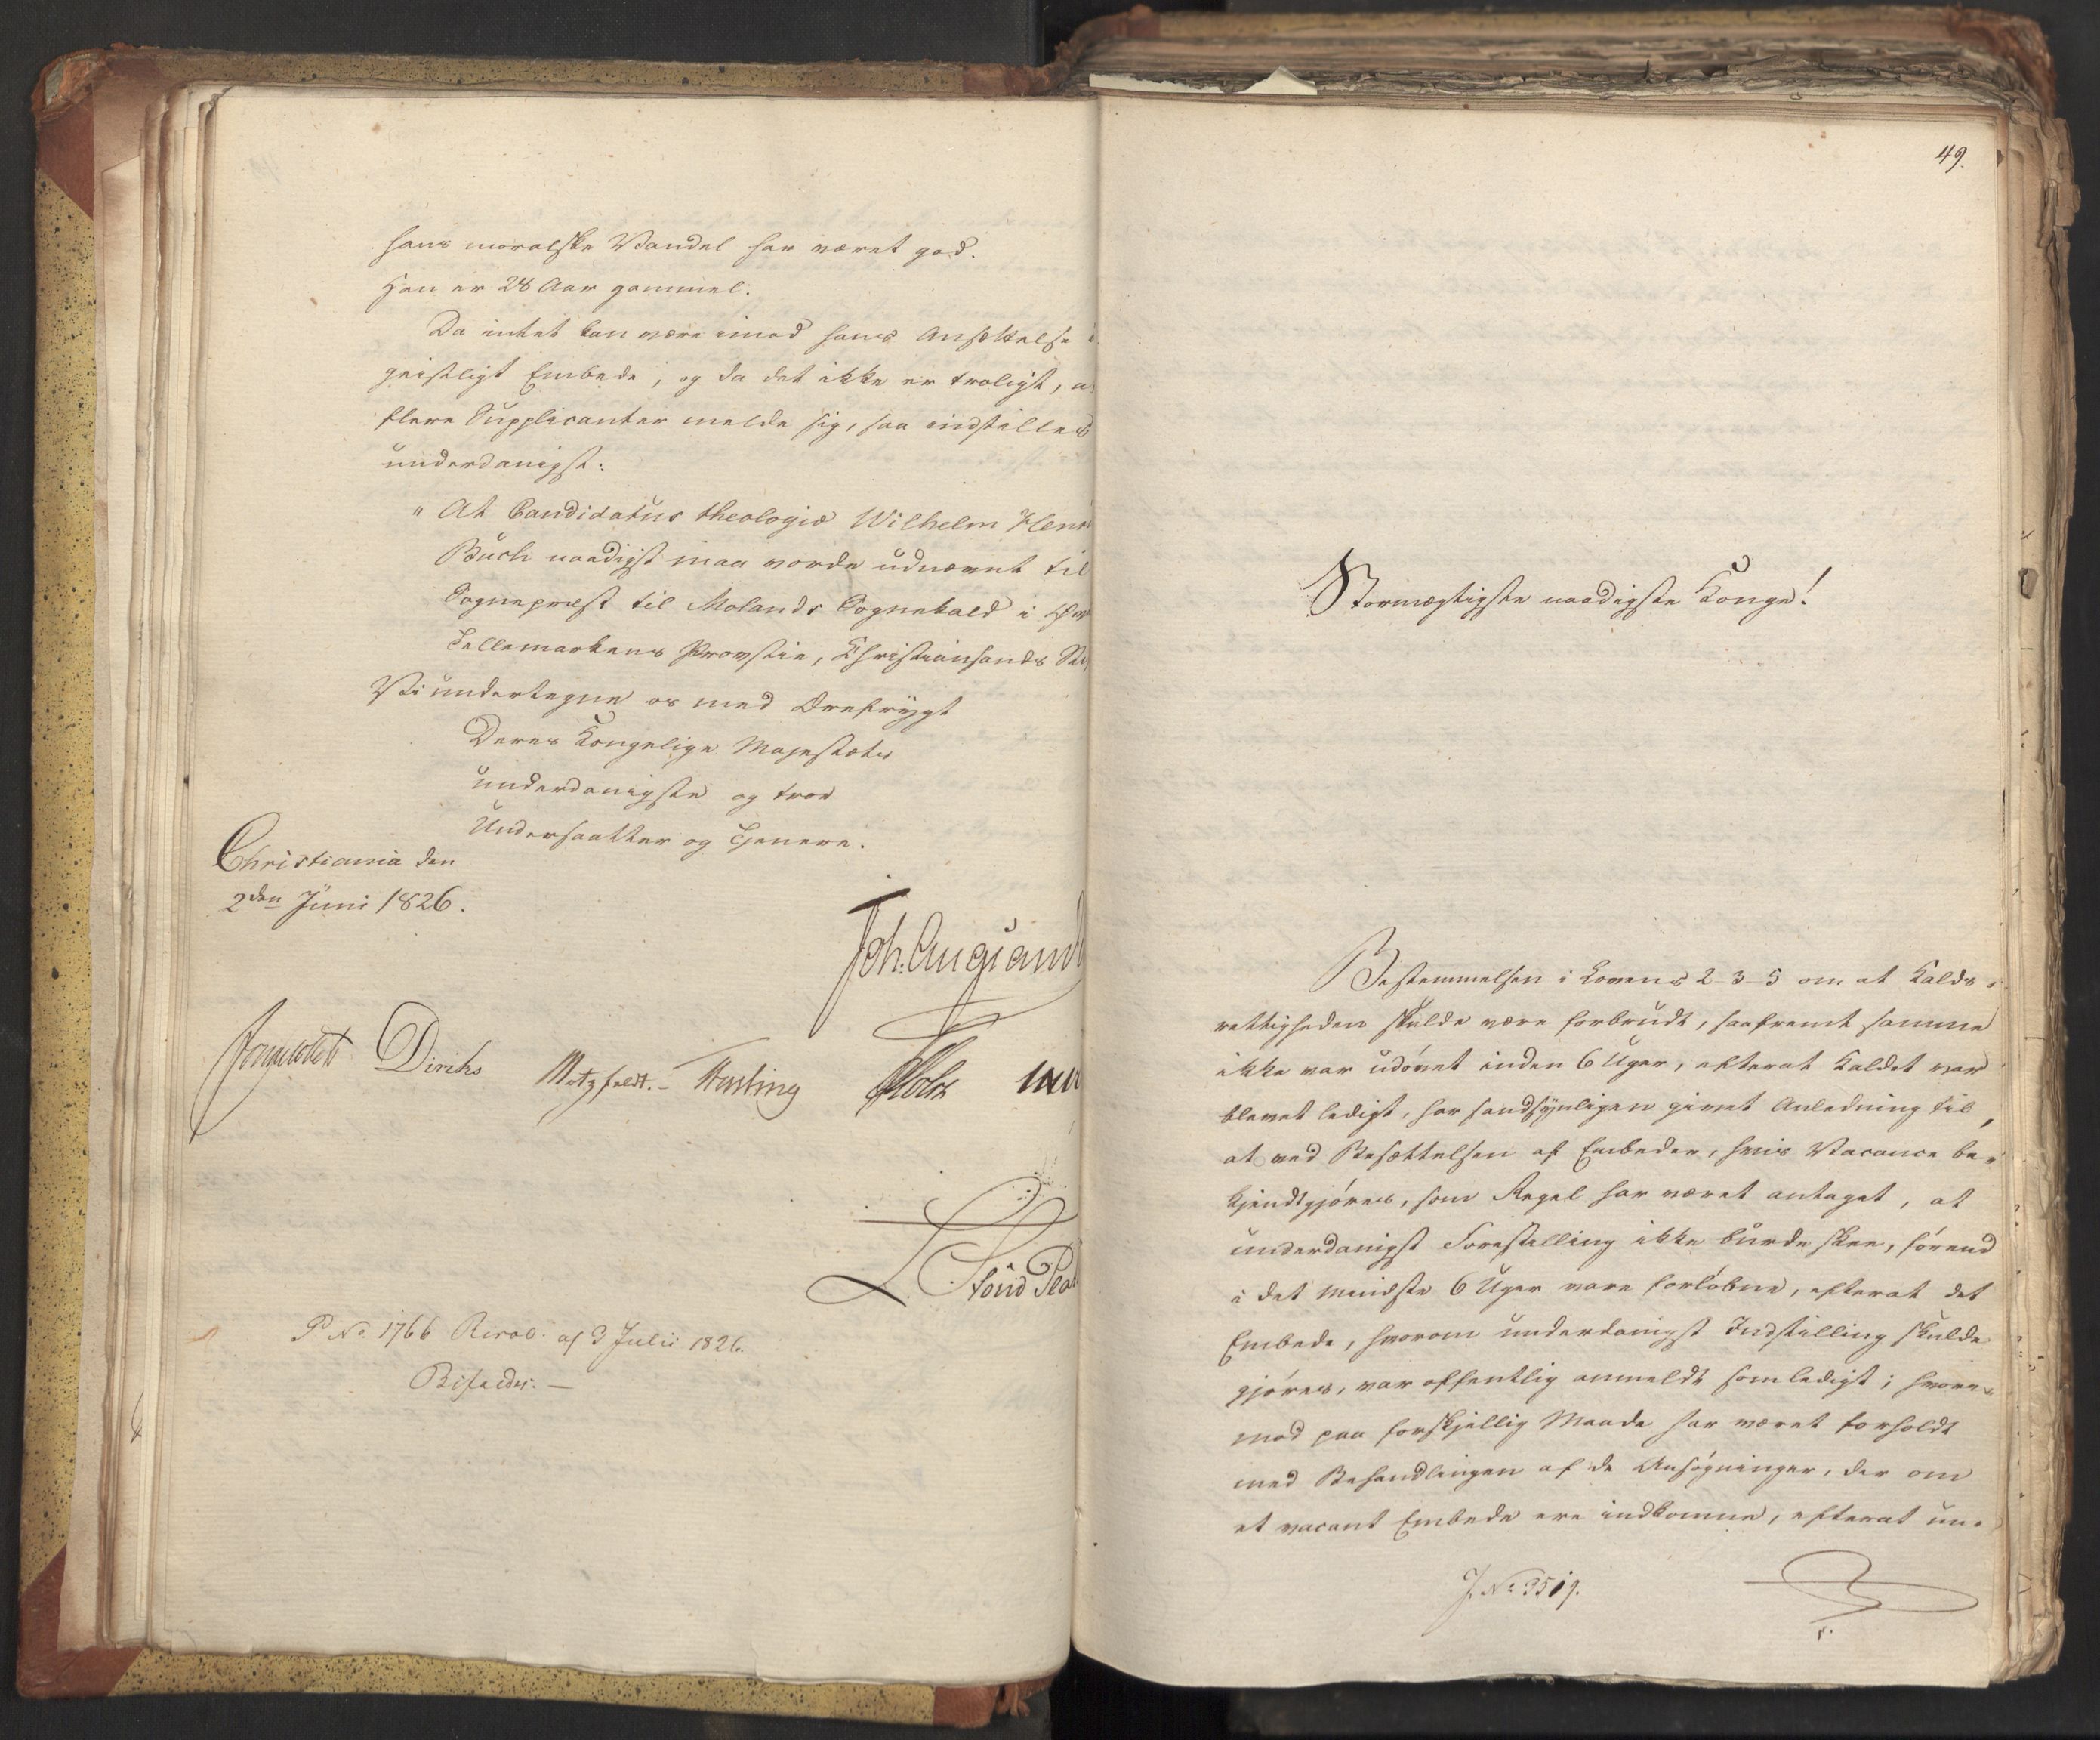 hans moralske Vandel har været god.
Han er 28 Aar gammel.
Da intet kan være imod hans Ansættelse i
geistligt Embede, og da det ikke er troligt, a
flere Supplicanter melde sig, saa indstilles
underdanigst:
" At Candidatus theologiæ Wilhelm Henr
Buch naadigst maa vorde udnævnt til
Sognepræst til Molands Sognekald i
Tellemarkens Provstie, Christiansands Sti
Vi undertegne os med Ærefrygt
Deres Kongelige Majestæts
underdanigste og troe
Undersaatter og Tjenere.
Christiania den
2den Juni 1826.
Joh: Aug: Sand
Diriks Motzfeldt.- Fasting Holst
P No. 1766 Resol: af 3 Julii 1826.
Bifaldes.-
49.
Stormægtigste naadigste Konge!
Bestemmelsen i Lovens 2-3-5 om at Kalds-
rettigheden skulde være forbrudt, saafremt samme
ikke var udövet inden 6 Uger, efterat Kaldet var
blevet ledigt, har sandsynligen givet Anledning til,
at ved Besættelsen af Embeder, hvis Vacance be-
kjendtgjöres, som Regel har været antaget, at
underdanigst Forestilling ikke burde skee, förend
i det mindste 6 Uger vare forløbne, efterat det
Embede, hvorom underdanigst Indstilling skulde
gjöres, var offentlig anmeldt som ledigt; hvori-
mod paa forskjellig Maade har været forholdt
med Behandlingen af de Ansögninger, der om
et vacant Embede ere indkomne, efterat un-
J. No 3519.